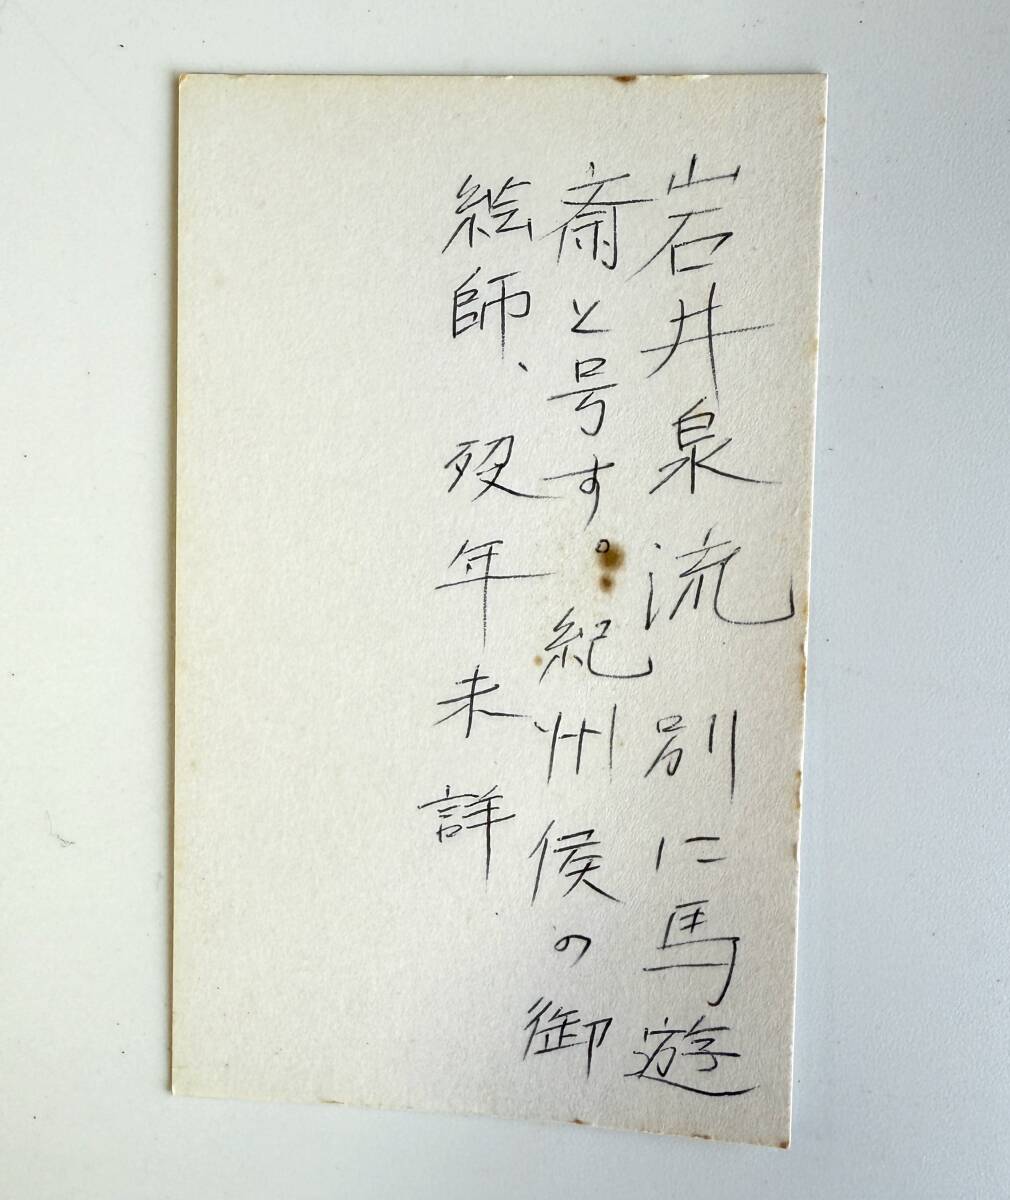 岩井泉流別に馬遊
斎と号す。紀州侯の御
絵師、歿年未詳